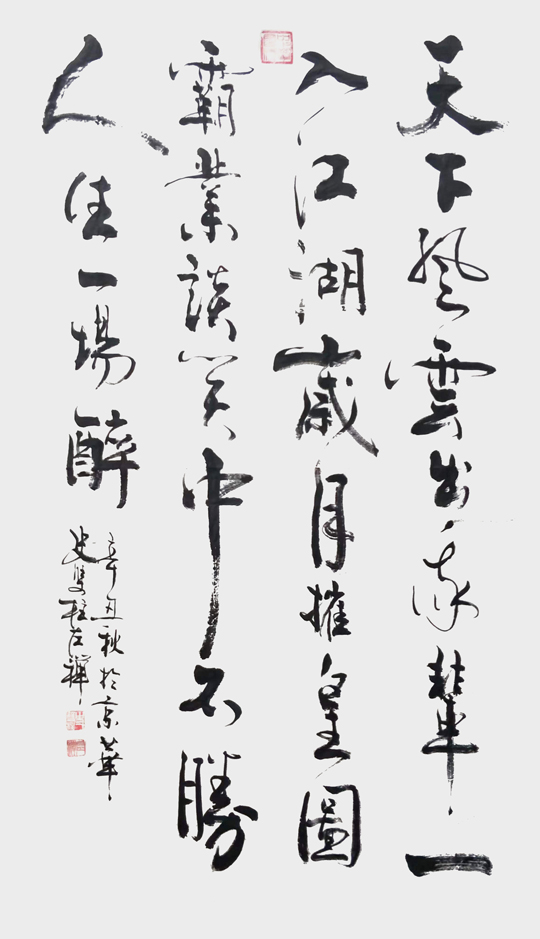 天下風雲出我輩一
入江湖歲月摧皇圖
霸業談笑中不勝
人生一場醉
辛丑秋於京華
史雙柱